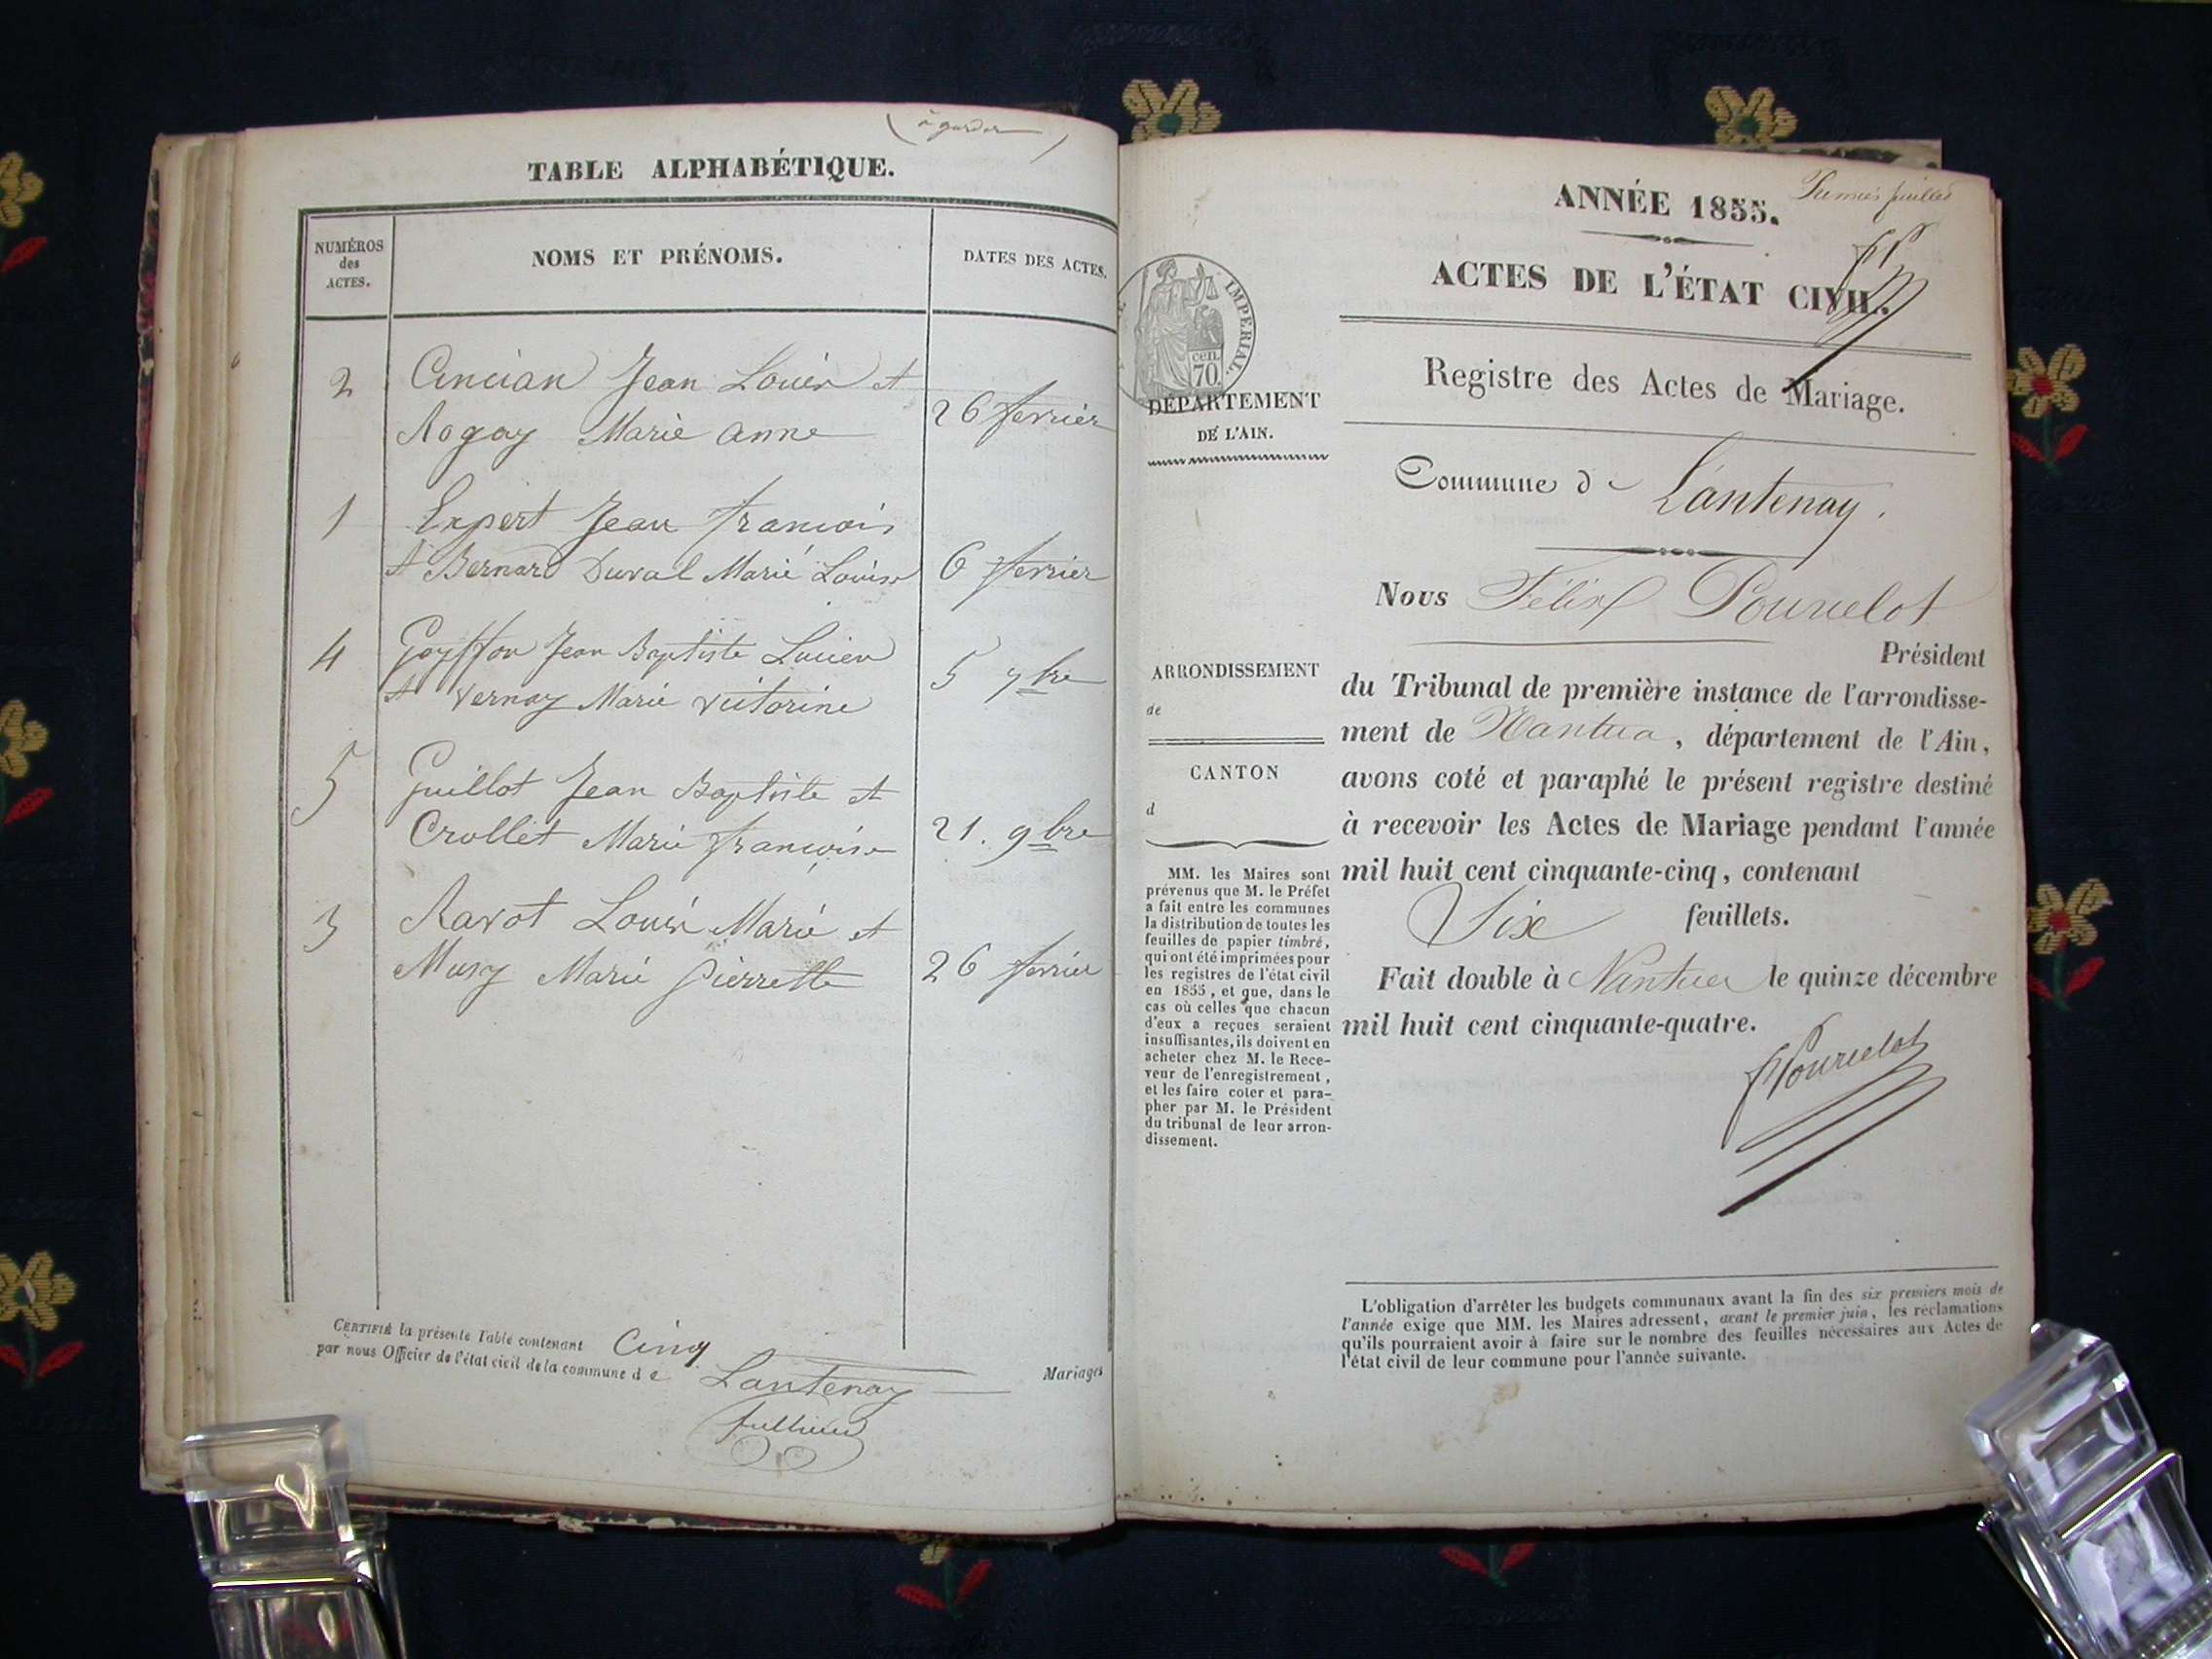 (à garder)
TABLE ALPHABÉTIQUE.
NUMÉROS
des
ACTES.
NOMS ET PRÉNOMS.
DATES DES ACTES.
2 Cincian Jean Louis et
Rogay Marie Anne 26 fevrier
1 Expert Jean francois
et Bernard Duval Marie Louise 6 fevrier
4 Goyffon Jean Baptiste Lucien
et Vernay Marie victorine 5 7bre
5 Guillot Jean Baptiste et
Crollet Marie françoise 21. 9bre
3 Ravot Louis Marie et
Musy Marie Pierrette 26 fevrier
CERTIFIÉ la présente Table contenant Cinq
Mariages
par nous Officier de l'état civil de la commune de Lantenay
ANNÉE 1855.
ACTES DE L'ÉTAT CIVIL.
Registre des Actes de Mariage.
IMPERIAL.
cen.
70
DÉPARTEMENT
DE L'AIN.
ARRONDISSEMENT
de
CANTON
d
MM. les Maires sont
prévenus que M. le Préfet
a fait entre les communes
la distribution de toutes les
feuilles de papier timbré,
qui ont été imprimées pour
les registres de l'état civil
en 1855, et que, dans le
cas où celles que chacun
d'eux a reçues seraient
insuffisantes, ils doivent en
acheter chez M. le Rece-
veur de l'enregistrement,
et les faire coter et para-
pher par M. le Président
du tribunal de leur arron-
dissement.
Commune de Lantenay.
Nous Félix Pourcelot
Président
du Tribunal de première instance de l'arrondisse-
ment de Nantua, département de l'Ain,
avons coté et paraphé le présent registre destiné
à recevoir les Actes de Mariage pendant l'année
mil huit cent cinquante-cinq, contenant
Six feuillets.
Fait double à Nantua le quinze décembre
mil huit cent cinquante-quatre.
Pourcelot
L'obligation d'arrêter les budgets communaux avant la fin des six premiers mois de
l'année exige que MM. les Maires adressent, avant le premier juin, les réclamations
qu'ils pourraient avoir à faire sur le nombre des feuilles nécessaires aux Actes de
l'état civil de leur commune pour l'année suivante.